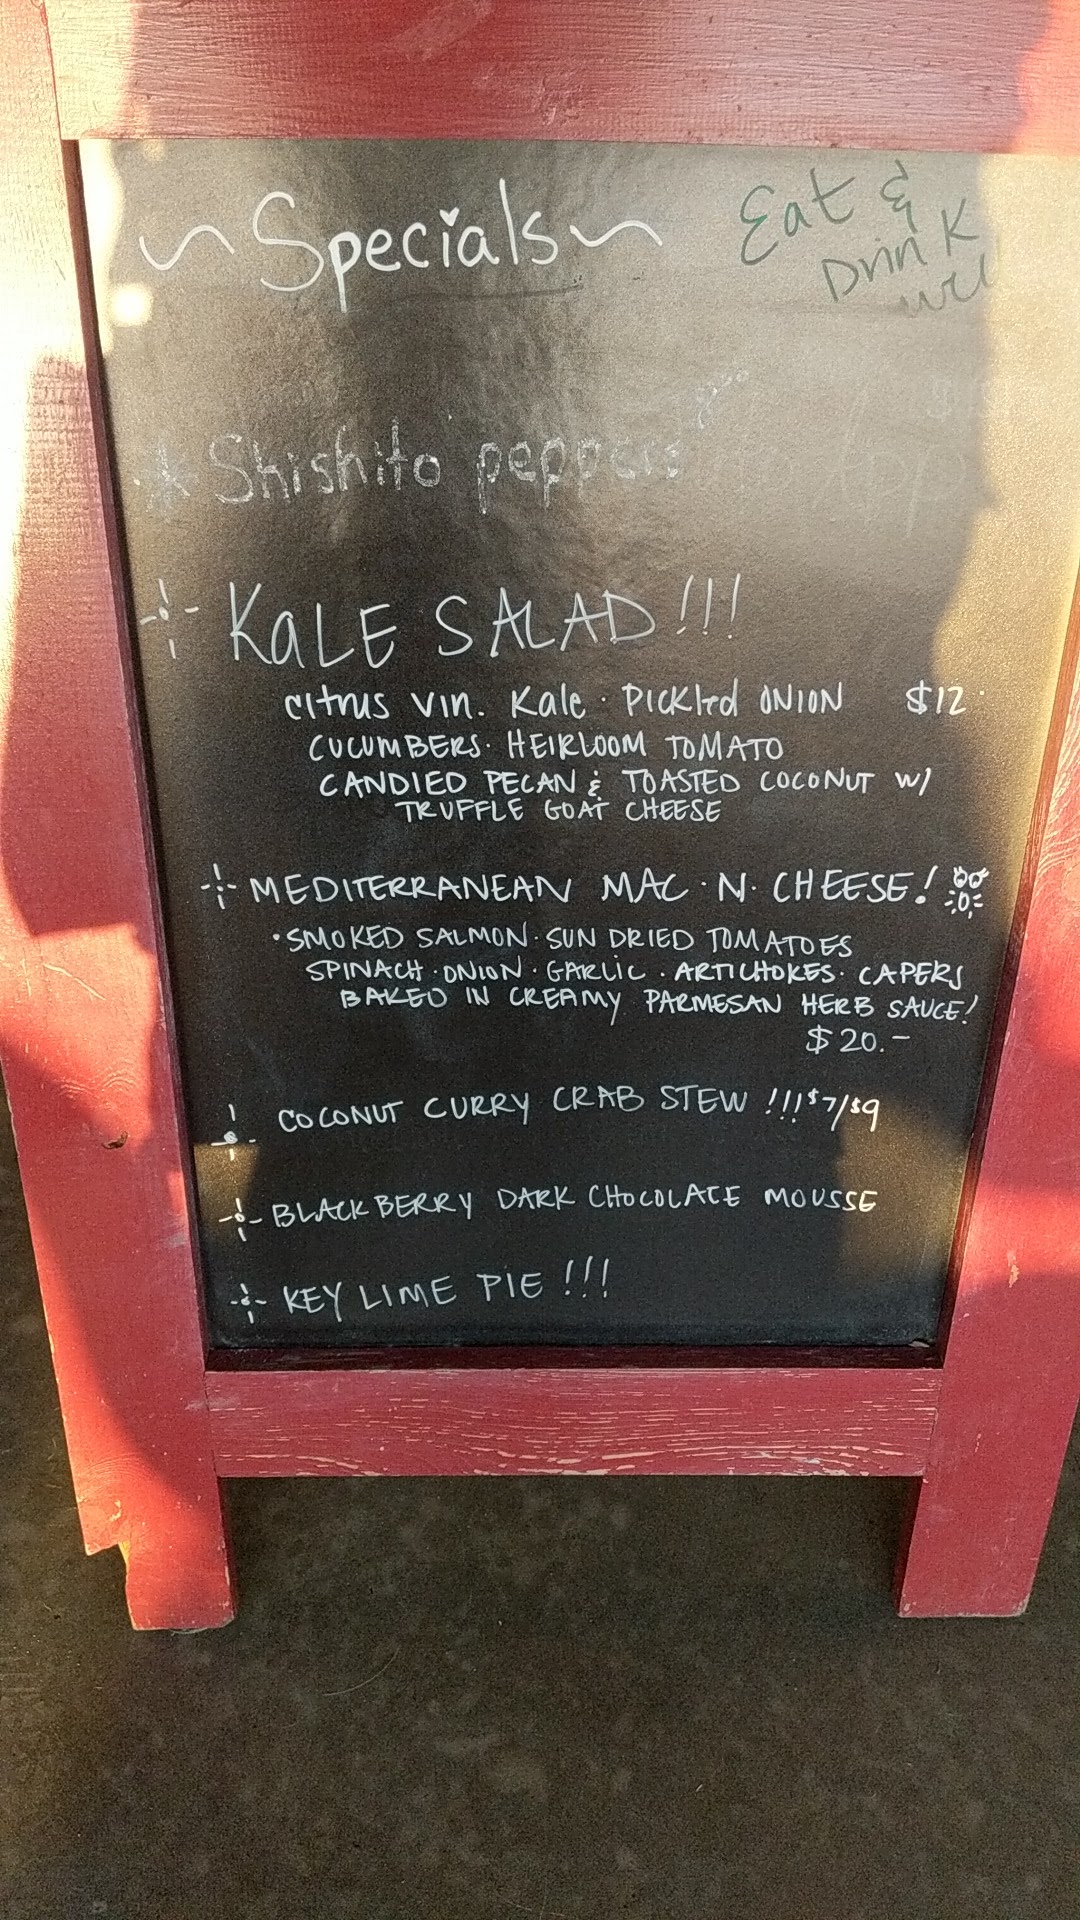 ~Specials~
Eat &
Drink
Shishito peppers
KaLE SALAD!!!
citrus vin. Kale · PICKLed ONION $12
CUCUMBERS · HEIRLOOM TOMATO
CANDIED PECAN & TOASTED COCONUT W/
TRUFFLE GOAT CHEESE
MEDITERRANEAN MAC · N · CHEESE!
· SMOKED SALMON · SUN DRIED TOMATOES
SPINACH · ONION · GARLIC · ARTICHOKES · CAPERS
BAKED IN CREAMY PARMESAN HERB SAUCE!
$20.-
COCONUT CURRY CRAB STEW !!! $7/$9
BLACKBERRY DARK CHOCOLATE MOUSSE
KEY LIME PIE!!!